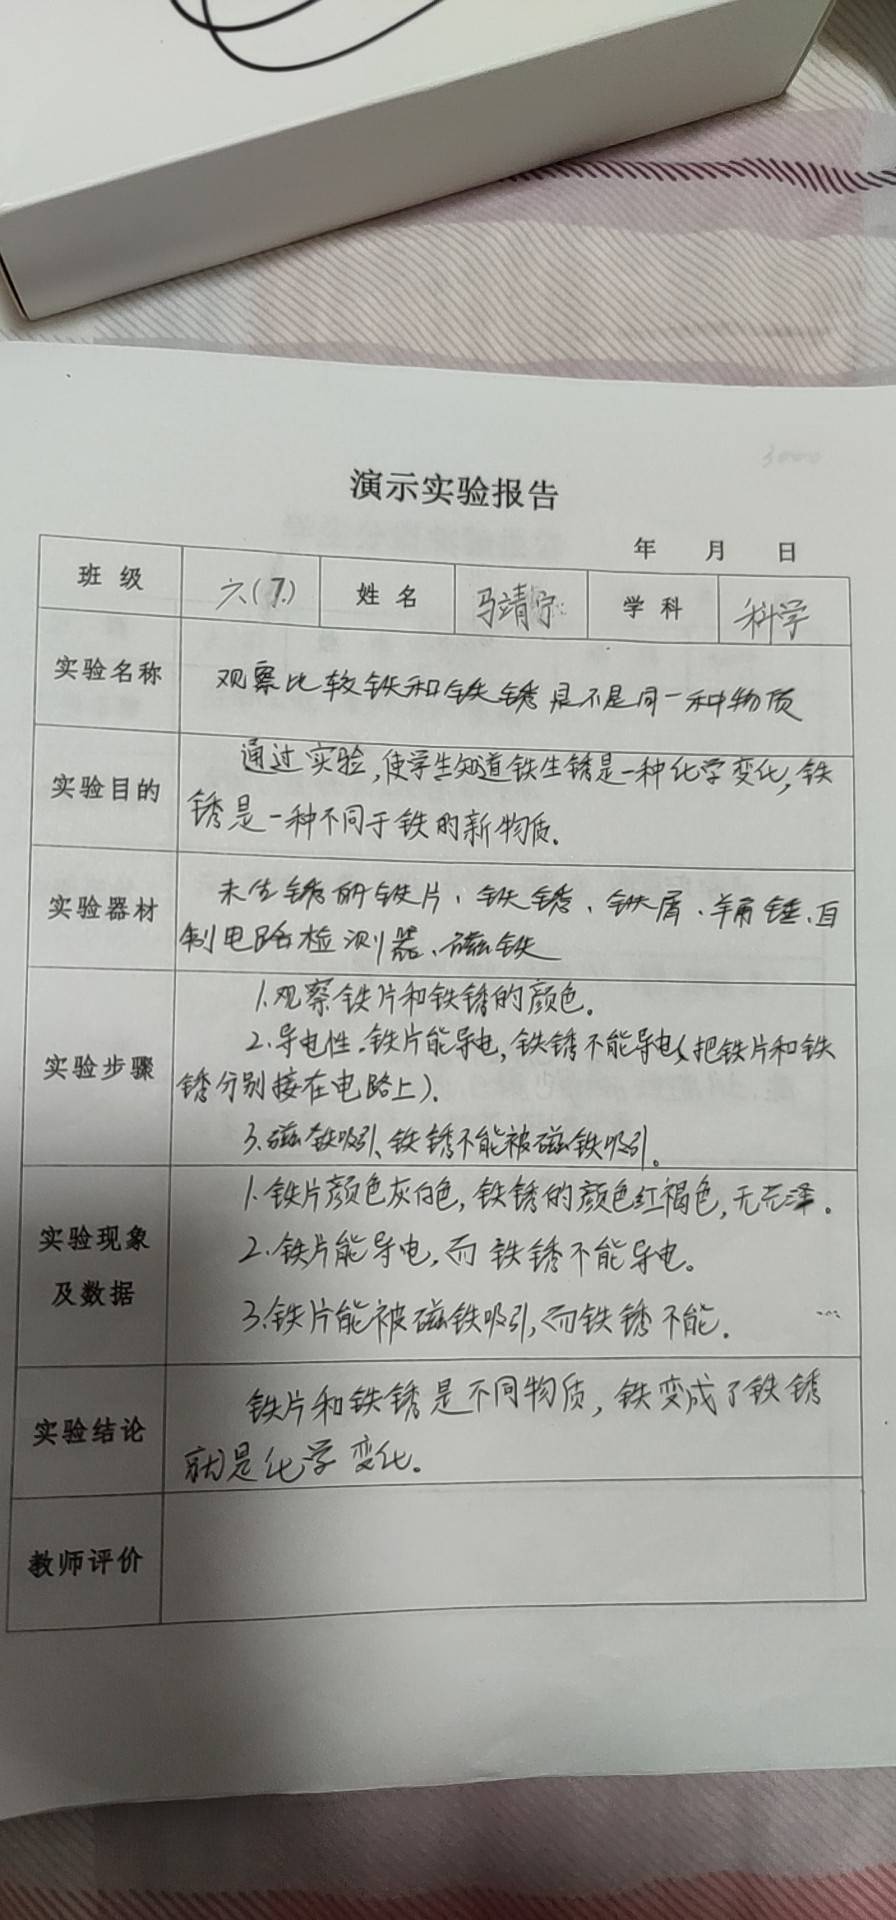 演示实验报告
年 月 日
班级 六(7.) 姓名 马靖宁 学科 科学
实验名称 观察比较铁和铁锈是不是同一种物质
实验目的 通过实验,使学生知道铁生锈是一种化学变化,铁
锈是一种不同于铁的新物质.
实验器材 未生锈的铁片、铁锈、铁屑、羊角锤、自
制电路检测器、磁铁
实验步骤 1.观察铁片和铁锈的颜色.
2.导电性.铁片能导电,铁锈不能导电(把铁片和铁
锈分别接在电路上).
3.磁铁吸引、铁锈不能被磁铁吸引。
实验现象
及数据 1.铁片颜色灰白色,铁锈的颜色红褐色,无光泽.
2.铁片能导电,而铁锈不能导电。
3.铁片能被磁铁吸引,而铁锈不能.
实验结论 铁片和铁锈是不同物质,铁变成了铁锈
就是化学变化.
教师评价